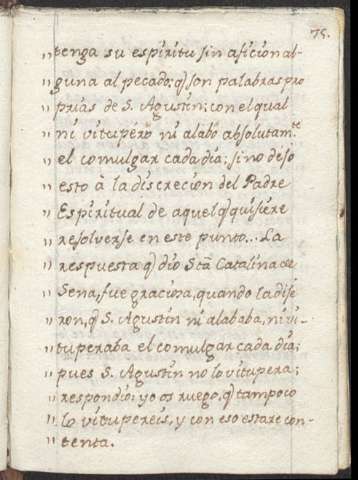 75.
" tenga su espiritu sin aficion al-
" guna al pecado; q̃ son palabras pro
" prias de S. Agustin; con el qual
" ni vitupéro ni alabo absolutam.te
" el comulgar cada dia; sino dejo
" esto à la discreción del Padre
" Espiritual de aquel q̃ quisiére
" resolverse en este punto... La
" respuesta q̃ dio S.ta Catalina de
" Sena, fue graciosa, quando la dije
" ron, q̃ S. Agustin ni alababa, ni vi-
" tuperaba el comulgar cada dia;
" pues S. Agustin no lo vitupera;
" respondió; yo os ruego, q̃ tampoco
" lo vitupereis, y con eso estare con-
" tenta.